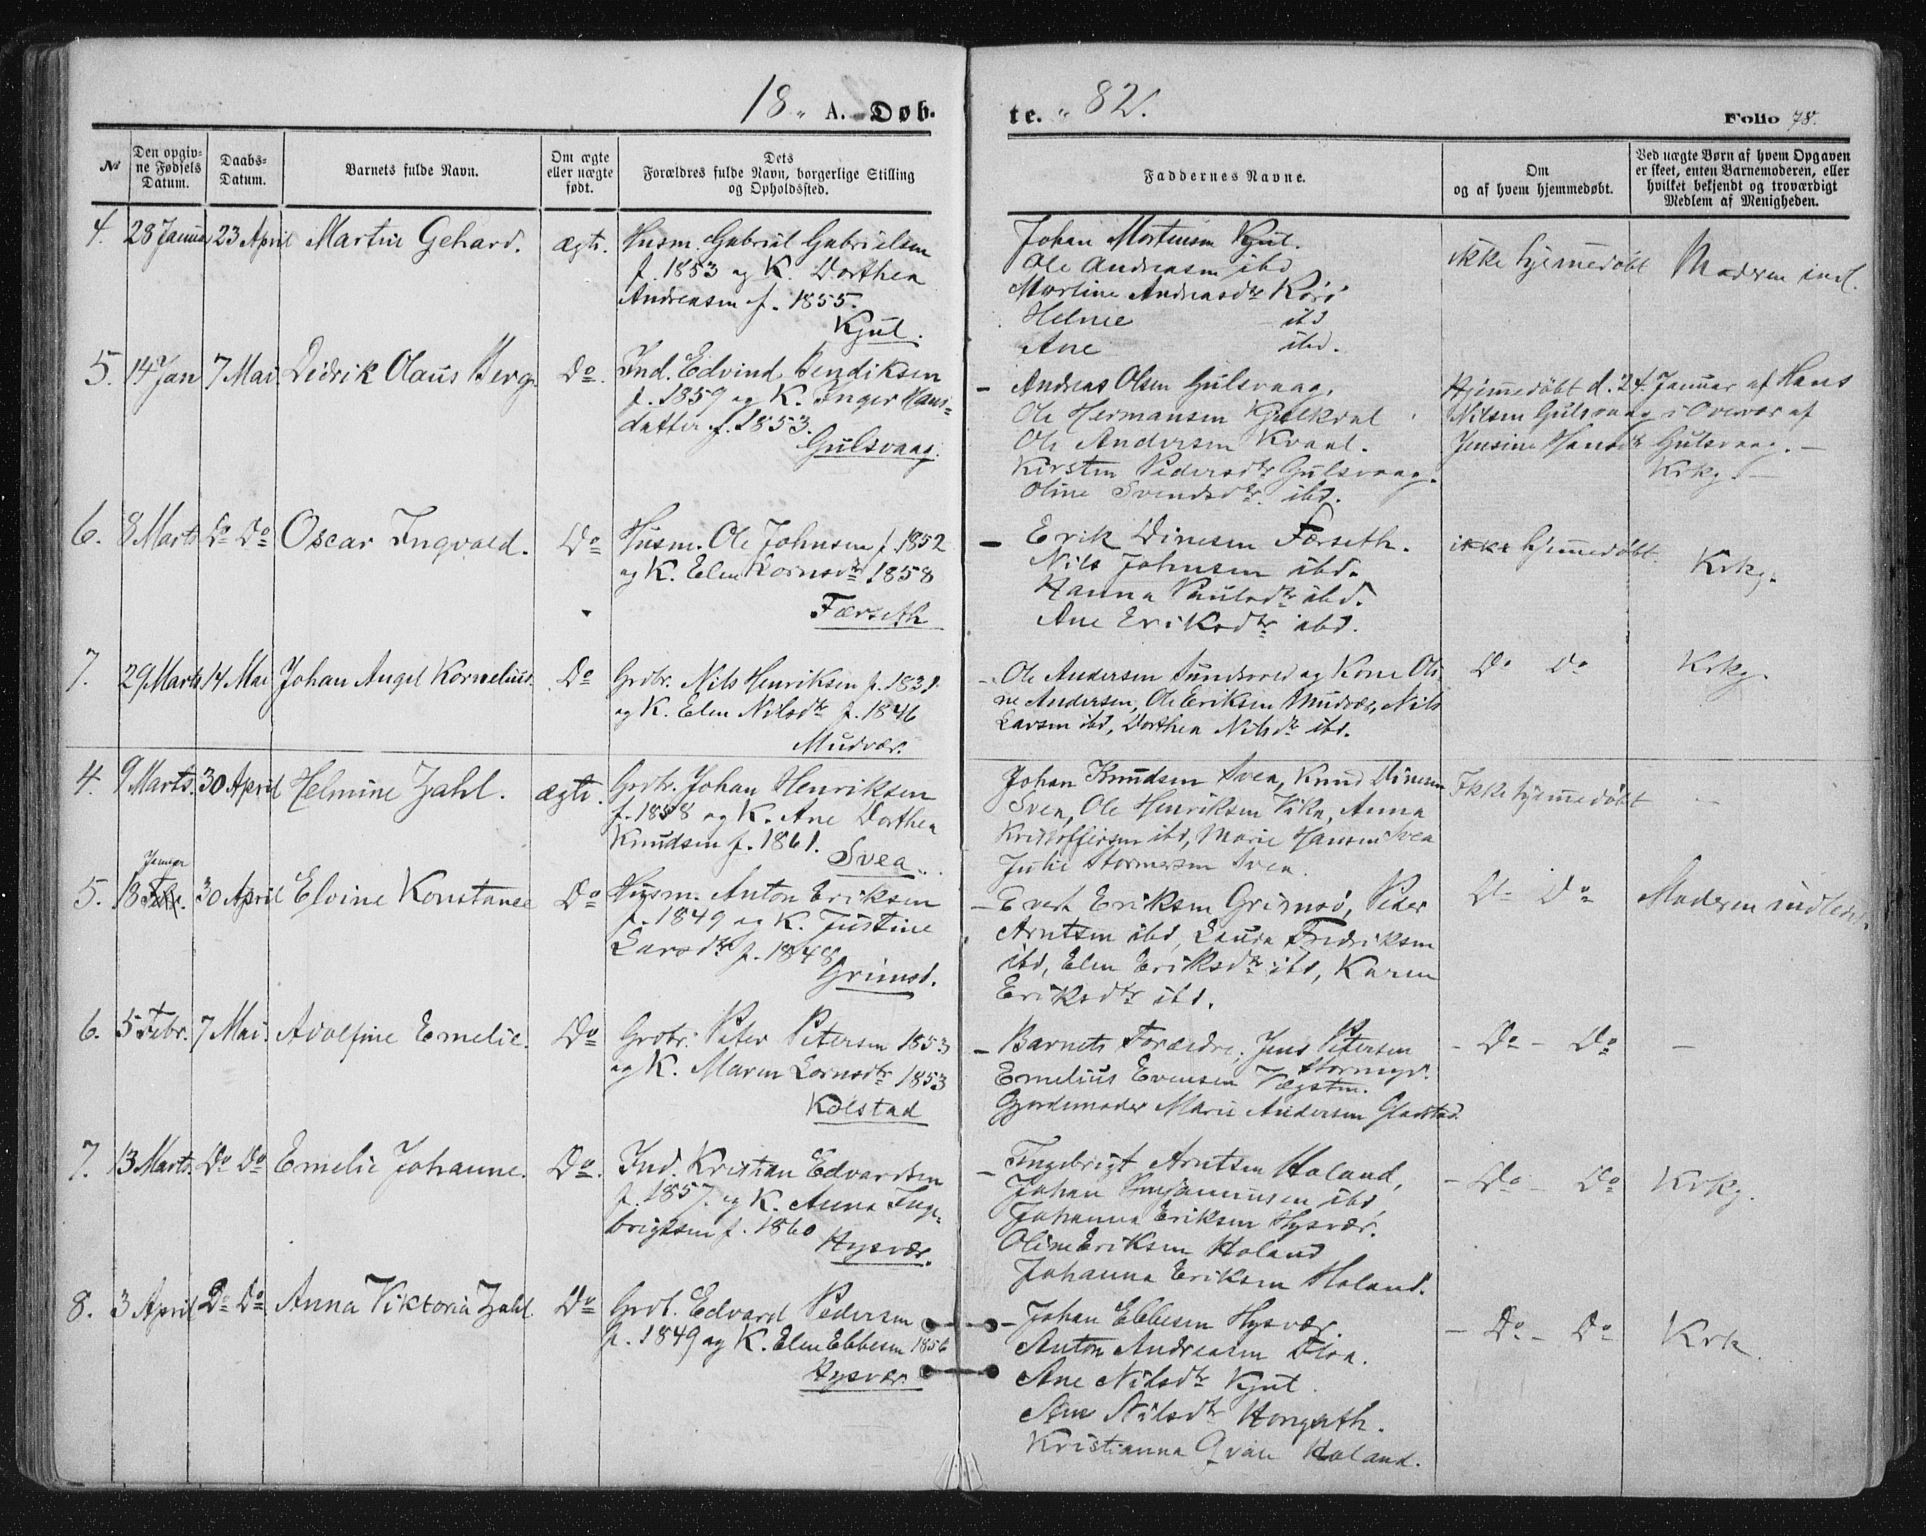 18 „ A. Døb-
te. „ 82.
Folio 78.
№
Den opgiv-
ne Fødsels
Datum.
Daabs-
Datum.
Barnets fulde Navn.
Om ægte
eller uægte
født.
Dets
Forældres fulde Navn, borgerlige Stilling
og Opholdssted.
Faddernes Navne.
Om
og af hvem hjemmedøbt.
Ved uægte Børn af hvem Opgaven
er skeet, enten Barnemoderen, eller
hvilket bekjendt og troværdigt
Medlem af Menigheden.
4. 28 Januar 23 April Martin Gehard. ægte.
Husm. Gabriel Gabrielsen
f. 1853 og K. Dorthea
Andreasen f. 1855.
Kjul.
Johan Mortensen Kjul.
Ole Andreasen ibd
Martine Andreasdr Korö
Helnee ibd
Ane ibd.
ikke hjemmedøbt
Moderen indl.
5. 14 Jan 7 Mai Didrik Olaus Berg Do.
Ind. Edvind Bendiksen
f. 1859 og K. Inger Hans-
datter f. 1853.
Gulsvaag.
- Andreas Olsen Gulsvaag,
Ole Hermansen
Ole Andersen Kvaal.
Kirsten Pedersdtr Gulsvaag.
Oline Svendsdtr ibd.
Hjemmedøbt d. 24. Januar af Hans
Nilsen Gulsvaag i Overvær af
Jensine Hansdr Gulsvaag. -
Krkg. -
6. 8 Marts Do Do Oscar Ingvald. Do
Husm. Ole Johnsen f. 1852
og K. Elen Kornsdtr 1858
Færseth
- Erik Dinesen Færseth.
Nils Johnsen ibd.
Hanna Paulsdtr ibd.
Ane Eriksdtr ibd.
ikke hjemmedøbt
Krkg.
7. 29 Marts 14 Mai Johan Angel Kornelius. Do
Grdbr. Nils Henriksen f. 1831.
og K. Elen Nilsdtr f. 1846
Mudvær.
- Ole Andersen Sundsvold og Kone Oli-
ne Andersen, Ole Eriksen Mudvær, Nils
Larsen ibd, Dorthea Nilsdtr ibd.
Do Do
Krkg.
4. 9 Marts. 30 April Helmine Zahl. ægte.
Grdbr. Johan Henriksen
f. 1858 og K. Ane Dorthea
Knudsen f. 1861.
Svea.
Johan Knudsen Svea, Knud Dinesen
Svea, Ole Henriksen Vika, Anna
Kristoffersen ibd, Marie Hansen Svea
Julie Stormesen Svea.
Ikke hjemmedøbt
-
Januar
5. 18 Febr. 30 April Elvine Konstanse Do
Husm. Anton Eriksen
f. 1849 og K. Justine
Larsdtr f. 1848
Grimsö.
- Evert Eriksen Grimsö, Peder
Arntsen ibd, Laura Fredriksen
ibd, Elen Eriksdtr ibd, Karen
Eriksdtr ibd.
Do Do
Moderen indledet.
6. 5 Febr. 7 Mai. Adolfine Emelie. Do
Grdbr. Peter Petersen 1853
og K. Maren Lornsdtr 1853
Kolstad
- Barnets Forældre, Jens Petersen
Stormyr.
Emelius Evensen Vægsten.
Gjordemoder Marie Andersen Gladstad.
- Do - Do
-
7. 13 Marts. Do Do Emelie Johanne. Do.
Ind. Kristian Edvardsen
f. 1857. og K. Anna Inge-
brigtsen f. 1860
Hysvær.
- Ingebrigt Arntsen Holand,
Johan Benjaminsen ibd
Johanna Eriksen Hysvær.
Oline Eriksen Holand
Johanna Eriksen Holand.
- Do - Do
Krkg.
8. 3 April Do Do Anna Viktoria Zahl. Do
Grdb. Edvard Pedersen
f. 1849 og K. Elen Ebbesen 1856
Hysvær
- Johan Ebbesen Hysvær
Anton Andreasen Floa.
Ane Nilsdtr Kjul
Ane Nilsdtr Hongseth.
Kristianna Qvale Holand.
- Do - Do
Krk.